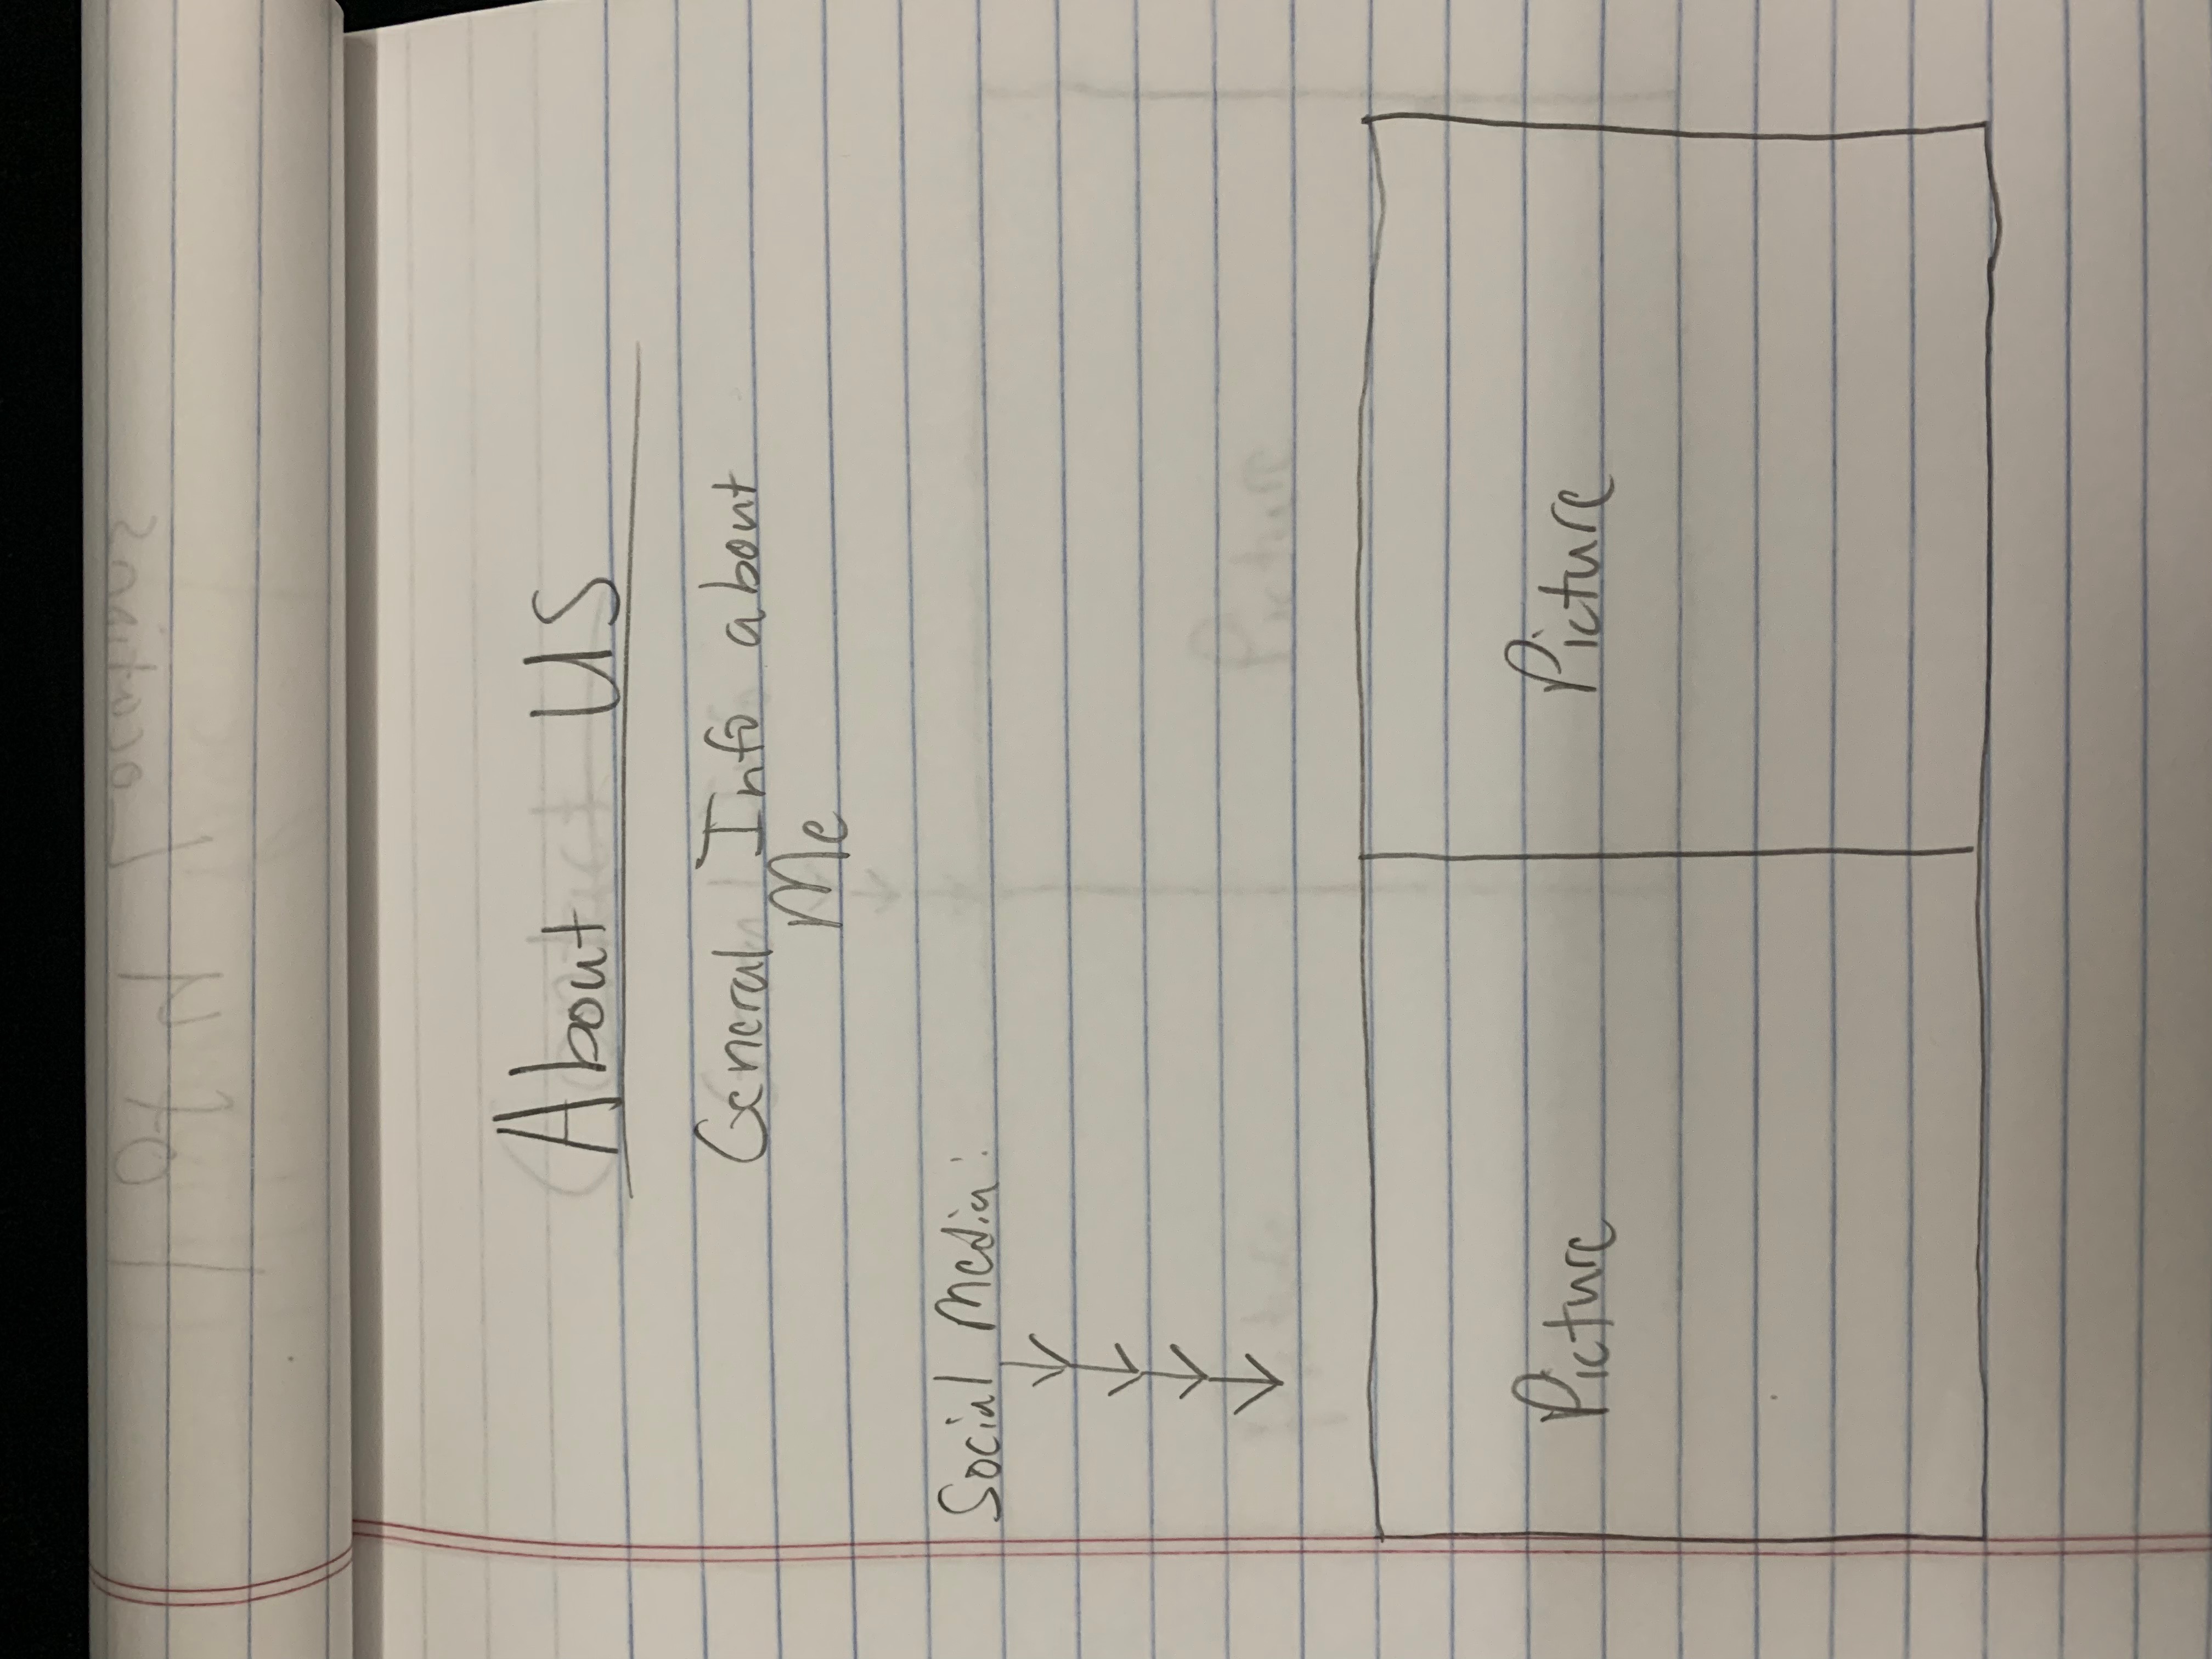 About US
General Info about
Me
Social Media:
Picture Picture